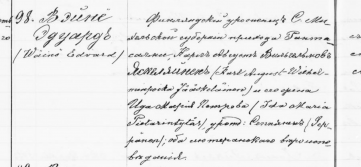 98. Вэйнэ
Эдуардъ
(Wäinö Edvard)
Финляндскій уроженецъ С. Ми-
хельской губерніи прихода Гянта-
сальми, Карлъ Августъ Вильгельмовъ
Яскеляйненъ (Karl August Wilhel-
minpoika Jääskeläinen) и его жена
Ида Марія Петрова (Ida Maria
Pietarintytär), урожд: Сеппяненъ (Sep-
pänen), оба лютеранскаго вѣроиспо-
вѣданія.